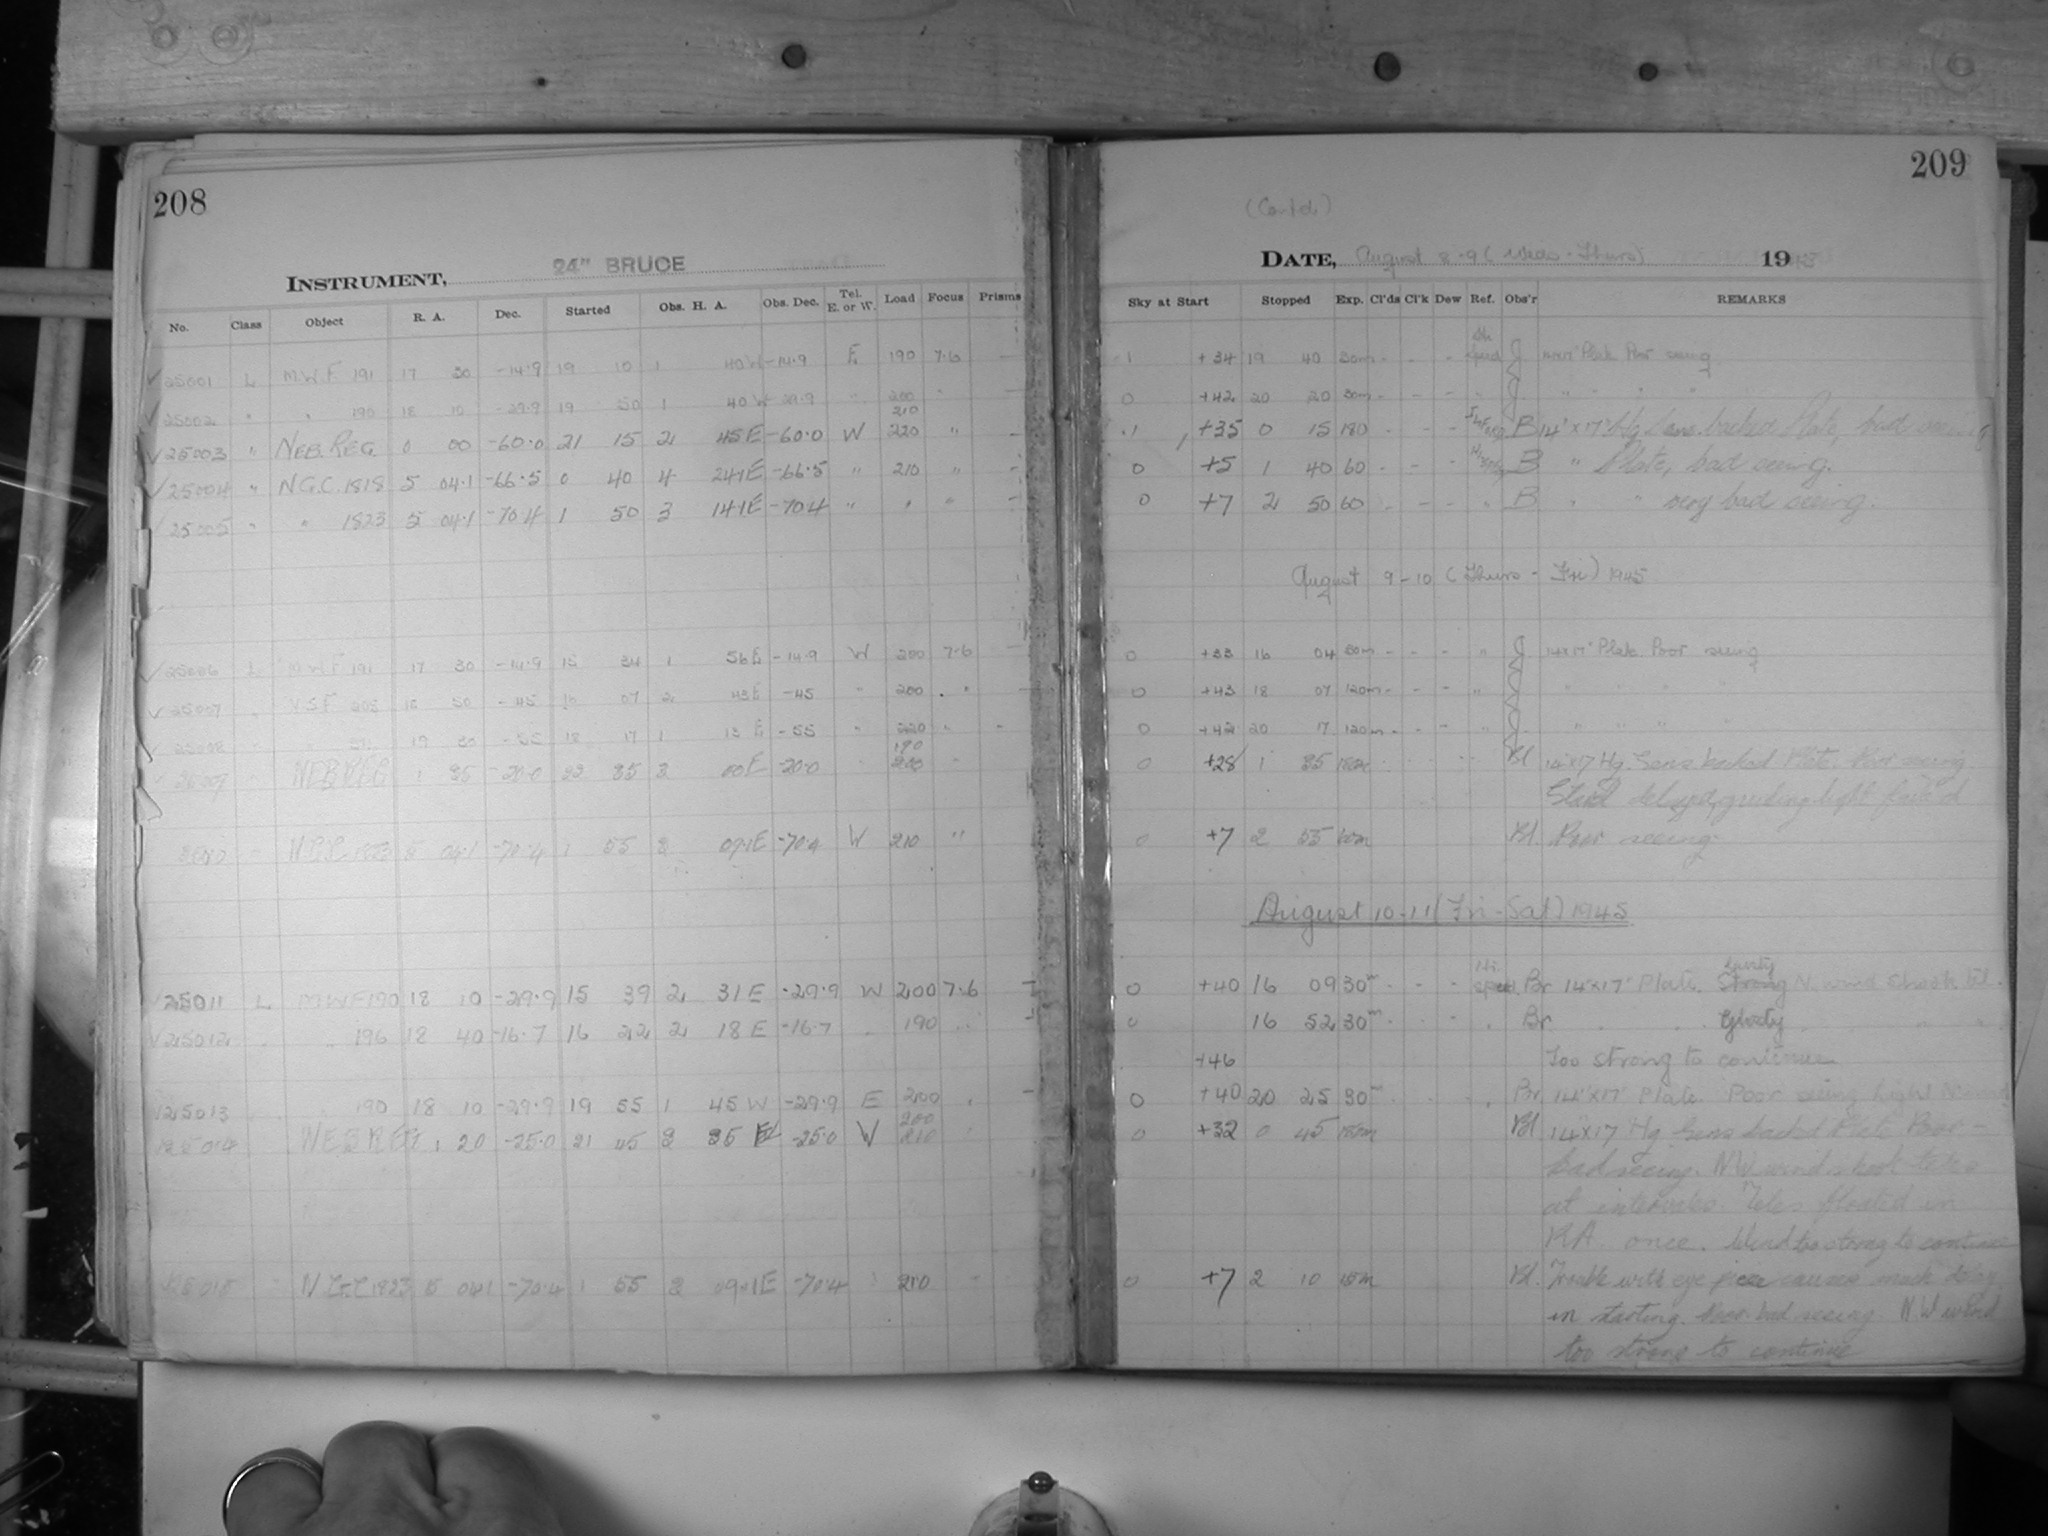 208
INSTRUMENT, 24" BRUCE
No. Class Object R. A. Dec. Started Obs. H. A. Obs. Dec. Tel. E. or W. Load Focus Prisms
✓ 25001 L M.W.F. 191 17 30 -14.9 19 10 1 40 W -14.9 E 190 7.6 -
✓ 25002 " " 190 18 10 -29.9 19 50 1 40 W -29.9 " 200 " -
210
✓ 25003 " NEB. REG. 0 00 -60.0 21 15 2 45 E -60.0 W 220 " -
✓ 25004 " N.G.C. 1818 5 04.1 -66.5 0 40 4 24.1 E -66.5 " 210 " -
✓ 25005 " " 1823 5 04.1 -70.4 1 50 3 14.1 E -70.4 " " " -
✓ 25006 L M.W.F. 191 17 30 -14.9 15 34 1 56 E -14.9 W 200 7.6 -
✓ 25007 " V.S.F. 18 50 -45 16 07 2 43 E -45 " 200 " -
✓ 25008 19 30 -55 18 17 1 13 E -55 " 220 " -
190
25009 " NEB. REG. 1 35 -20.0 22 35 3 00 E -20.0 " 200 "
N.G.C. 1823 5 04.1 -70.4 1 55 3 09.1 E -70.4 W 210 "
✓ 25011 L M.W.F. 190 18 10 -29.9 15 39 2 31 E -29.9 W 200 7.6 -
✓ 25012 " " 196 18 40 -16.7 16 22 2 18 E -16.7 " 190 "
✓ 25013 " 190 18 10 -29.9 19 55 1 45 W -29.9 E 200 " -
200
✓ 25014 NEB. REG. 1 20 -25.0 21 45 3 35 E -25.0 W 210 "
25015 N.G.C. 1823 5 04.1 -70.4 1 55 3 09.1 E -70.4 " 210 "
209
(Contd.)
DATE, August 8-9 (Weds - Thurs) 1945
Sky at Start Stopped Exp. Cl'ds Cl'k Dew Ref. Obs'r REMARKS
.1 +34 19 40 30m - - - J 14x17" Plate Poor seeing
0 +42 20 20 30m - - - " J " " " "
.1 +35 0 15 180 - - - B 14"x17" Hg. Sens. backed Plate, bad seeing
0 +5 1 40 60 - - - B " Plate, bad seeing.
0 +7 2 50 60 - - - " B " " very bad seeing.
August 9-10 (Thurs - Fri) 1945
0 +33 16 04 30m - - - " J 14x17" Plate Poor seeing
0 +43 18 07 120m - - - " J " " " "
0 +42 20 17 120m - - - " J " " " "
0 +28 1 35 180m Bl 14x17 Hg. Sens. backed Plate. Poor seeing
Start delayed, guiding light failed
0 +7 2 55 60m Bl. Poor seeing.
August 10-11 (Fri - Sat) 1945
0 +40 16 09 30m - - - Br 14"x17" Plate. Gusty Strong N. wind shook tel.
0 16 52 30m - - - " Br " " Gusty " " " "
+46 Too strong to continue
0 +40 20 25 30m " Br 14"x17" Plate. Poor seeing light N wind
0 +32 0 45 180m Bl 14x17 Hg Sens backed Plate Poor-
bad seeing. N.W. wind shook tele
at intervals. Teles floated in
R.A. once. Wind too strong to continue
0 +7 2 10 15m Bl. Trouble with eye piece causes much delay
in starting. Poor bad seeing. N.W. wind
too strong to continue